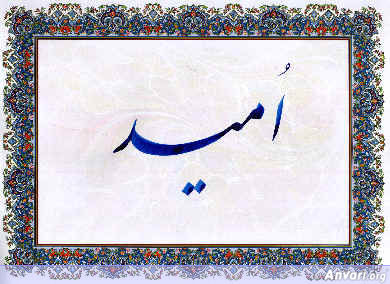 اُمید
Anvari.org